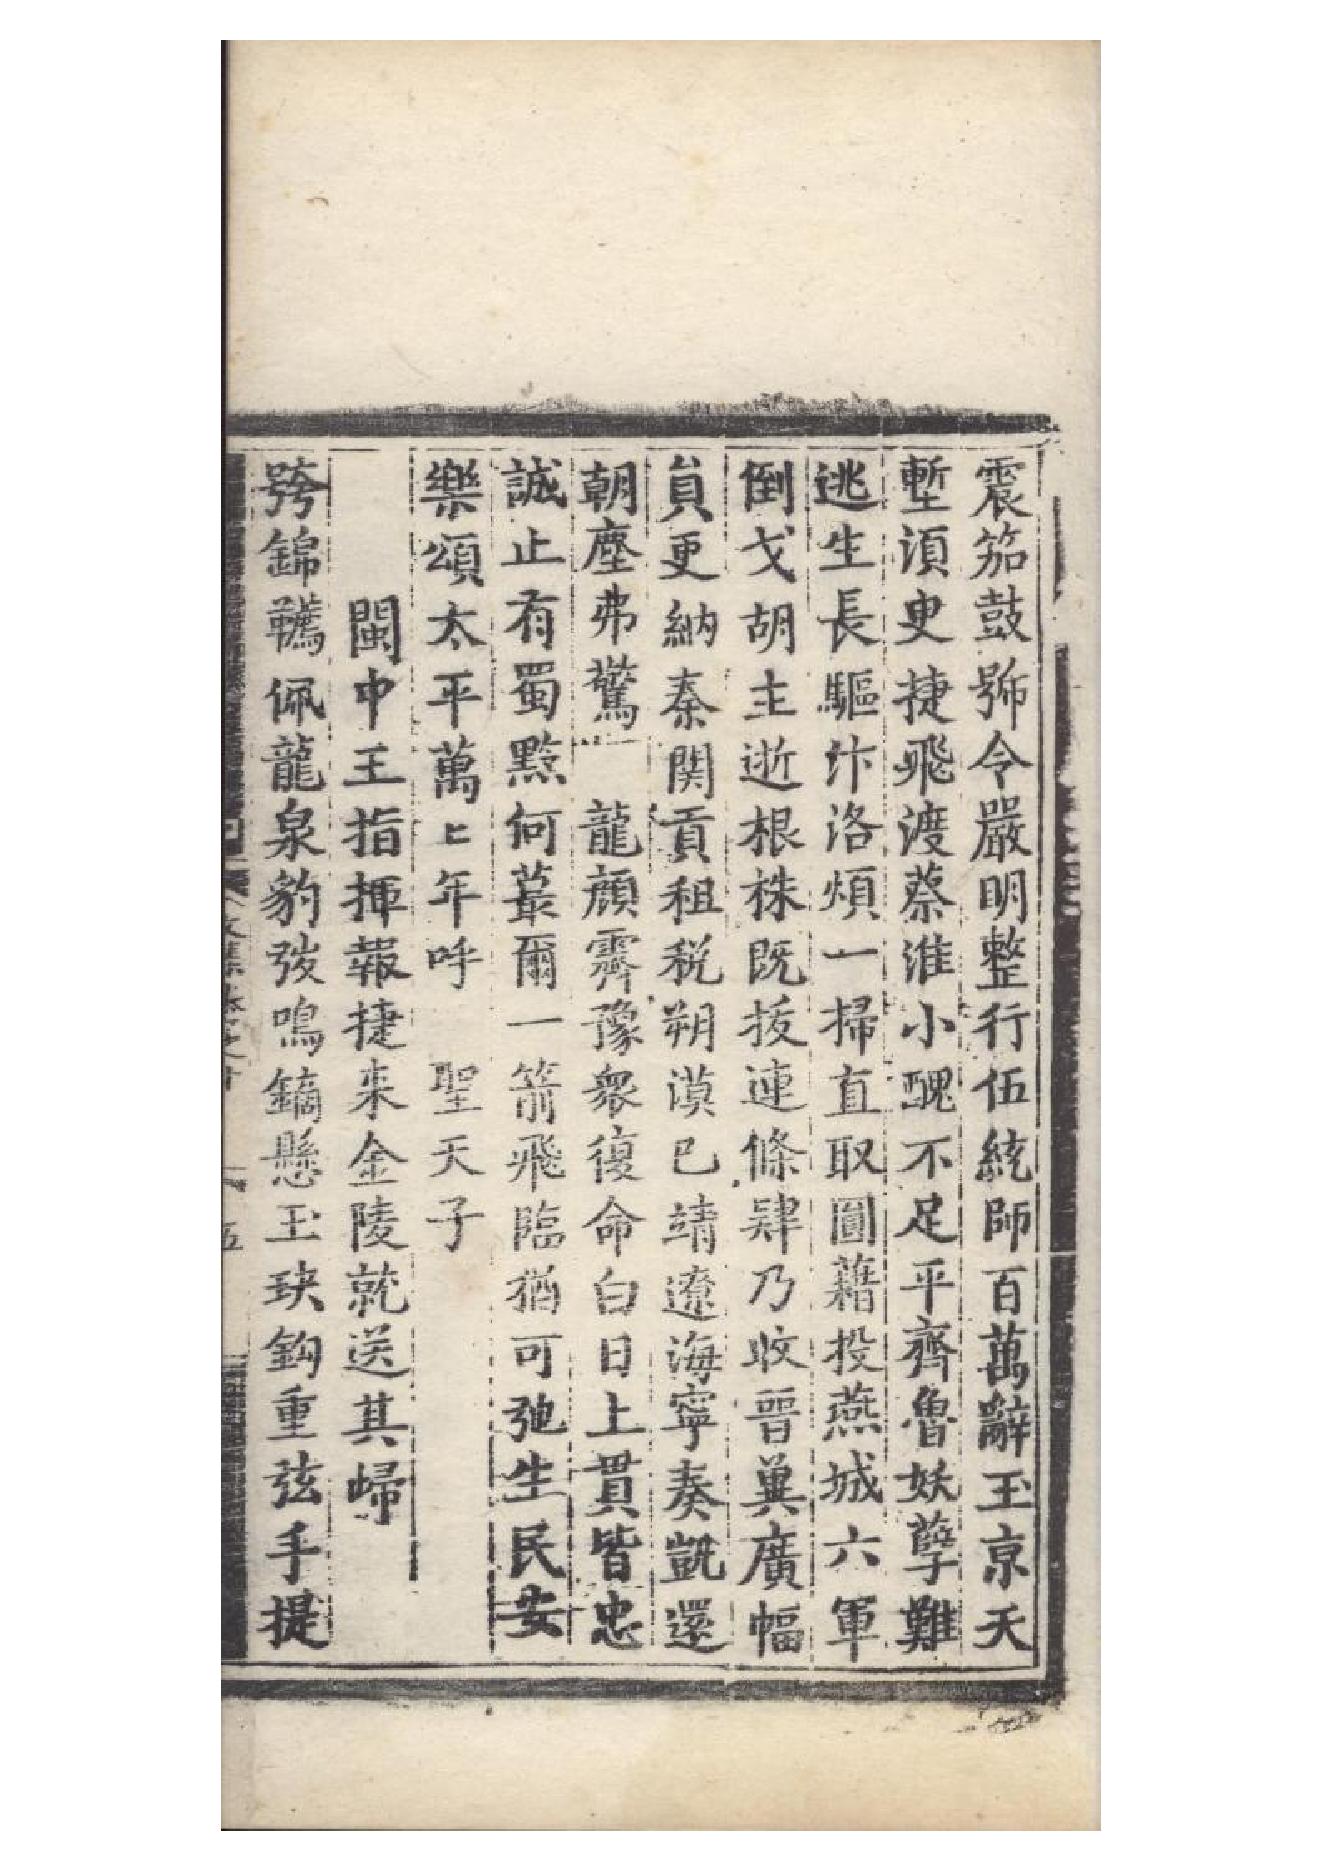 震笳鼓號令嚴明整行伍統師百萬辭玉京天
塹須臾捷飛渡蔡淮小醜不足平齊魯妖孽難
逃生長驅汴洛煩一掃直取圖藉投燕城六軍
倒戈胡主逝根株既拔連條肄乃收晉冀廣幅
員更納秦関貢租税朔漠已靖遼海寧奏凱還
朝塵弗驚 龍顔霽豫衆復命白日上貫皆忠
誠止有蜀黔何蕞爾一箭飛臨猶可弛生民安
樂頌太平萬匕年呼 聖天子
閩中王指揮報捷来金陵就送其歸
跨錦韉佩龍泉豹弢鳴鏑懸玉玦鈎重弦手提
文集卷之十 五